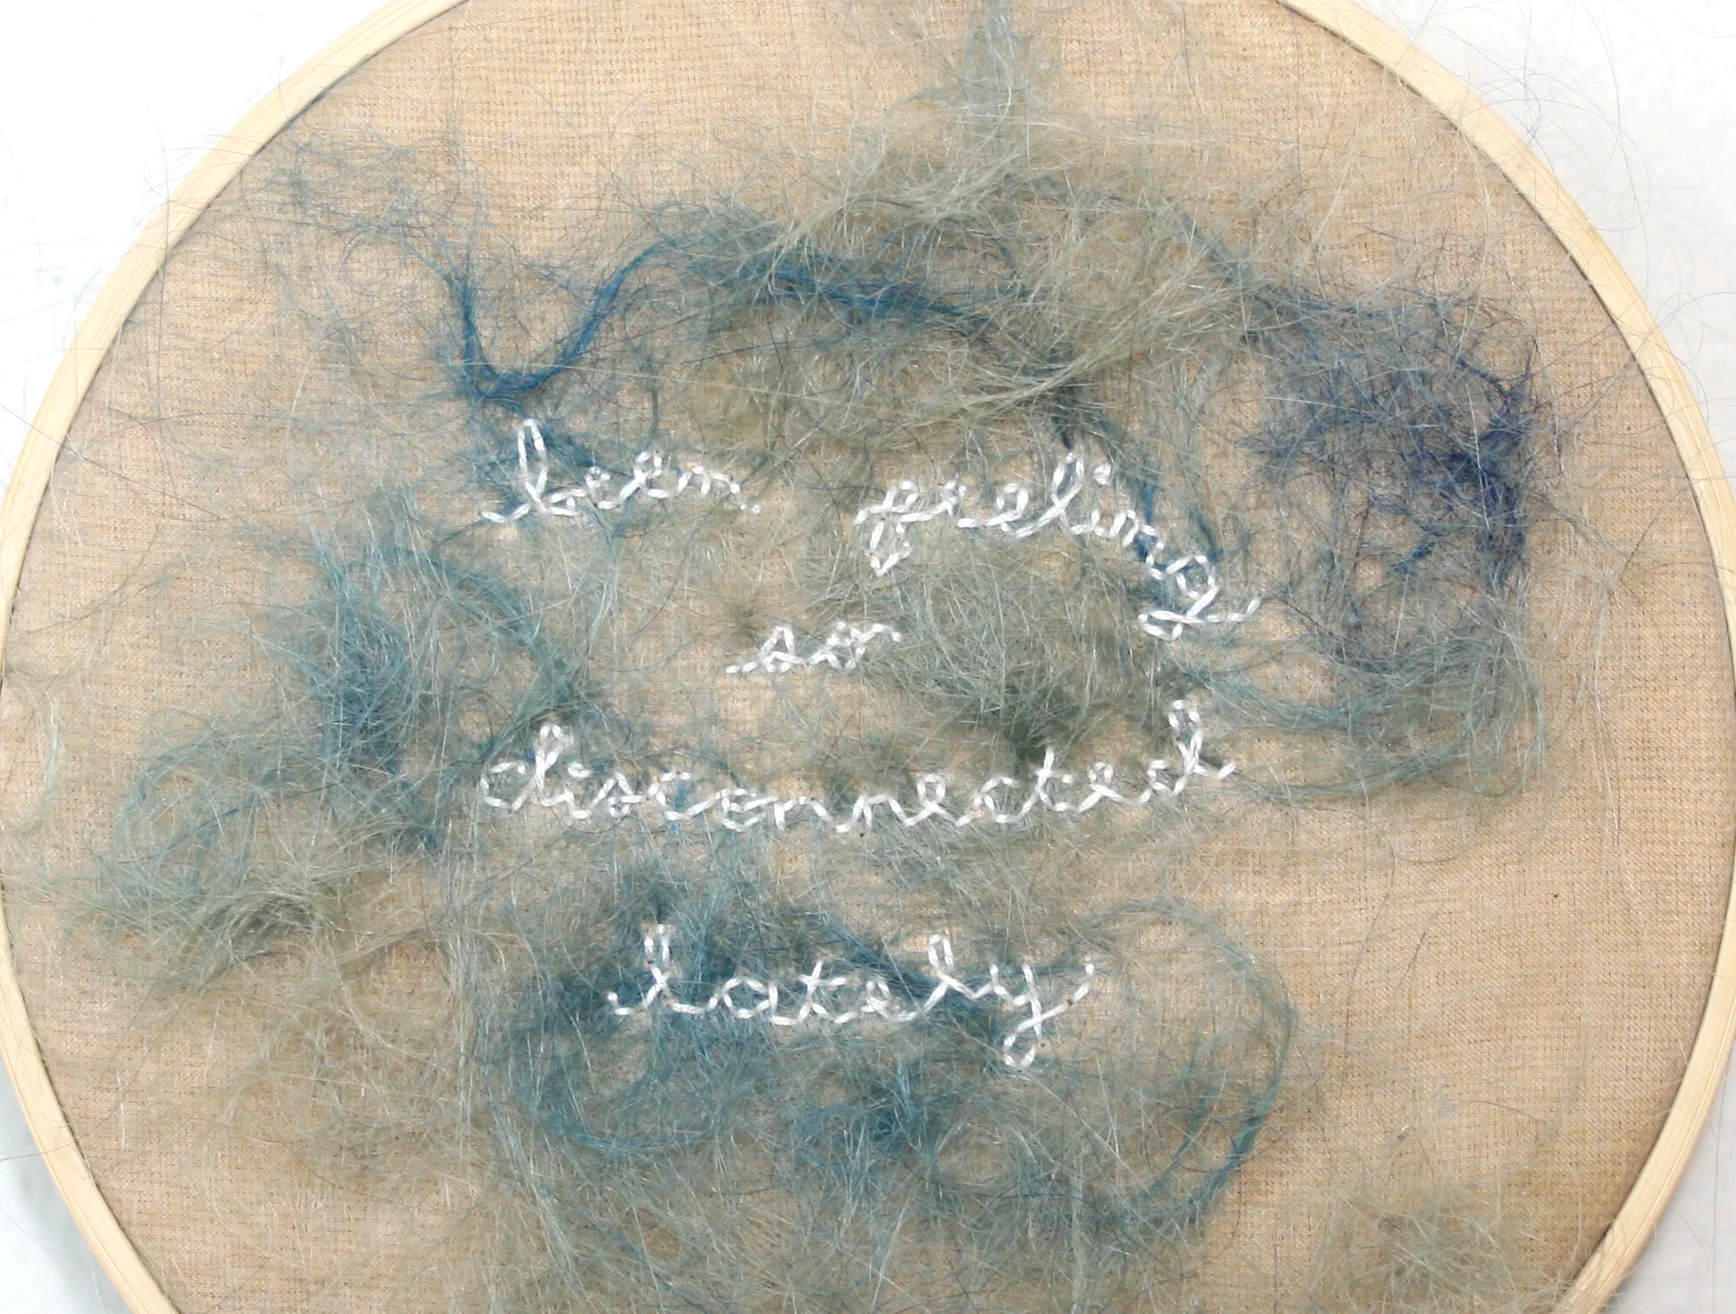 been feeling
so
disconnected
lately